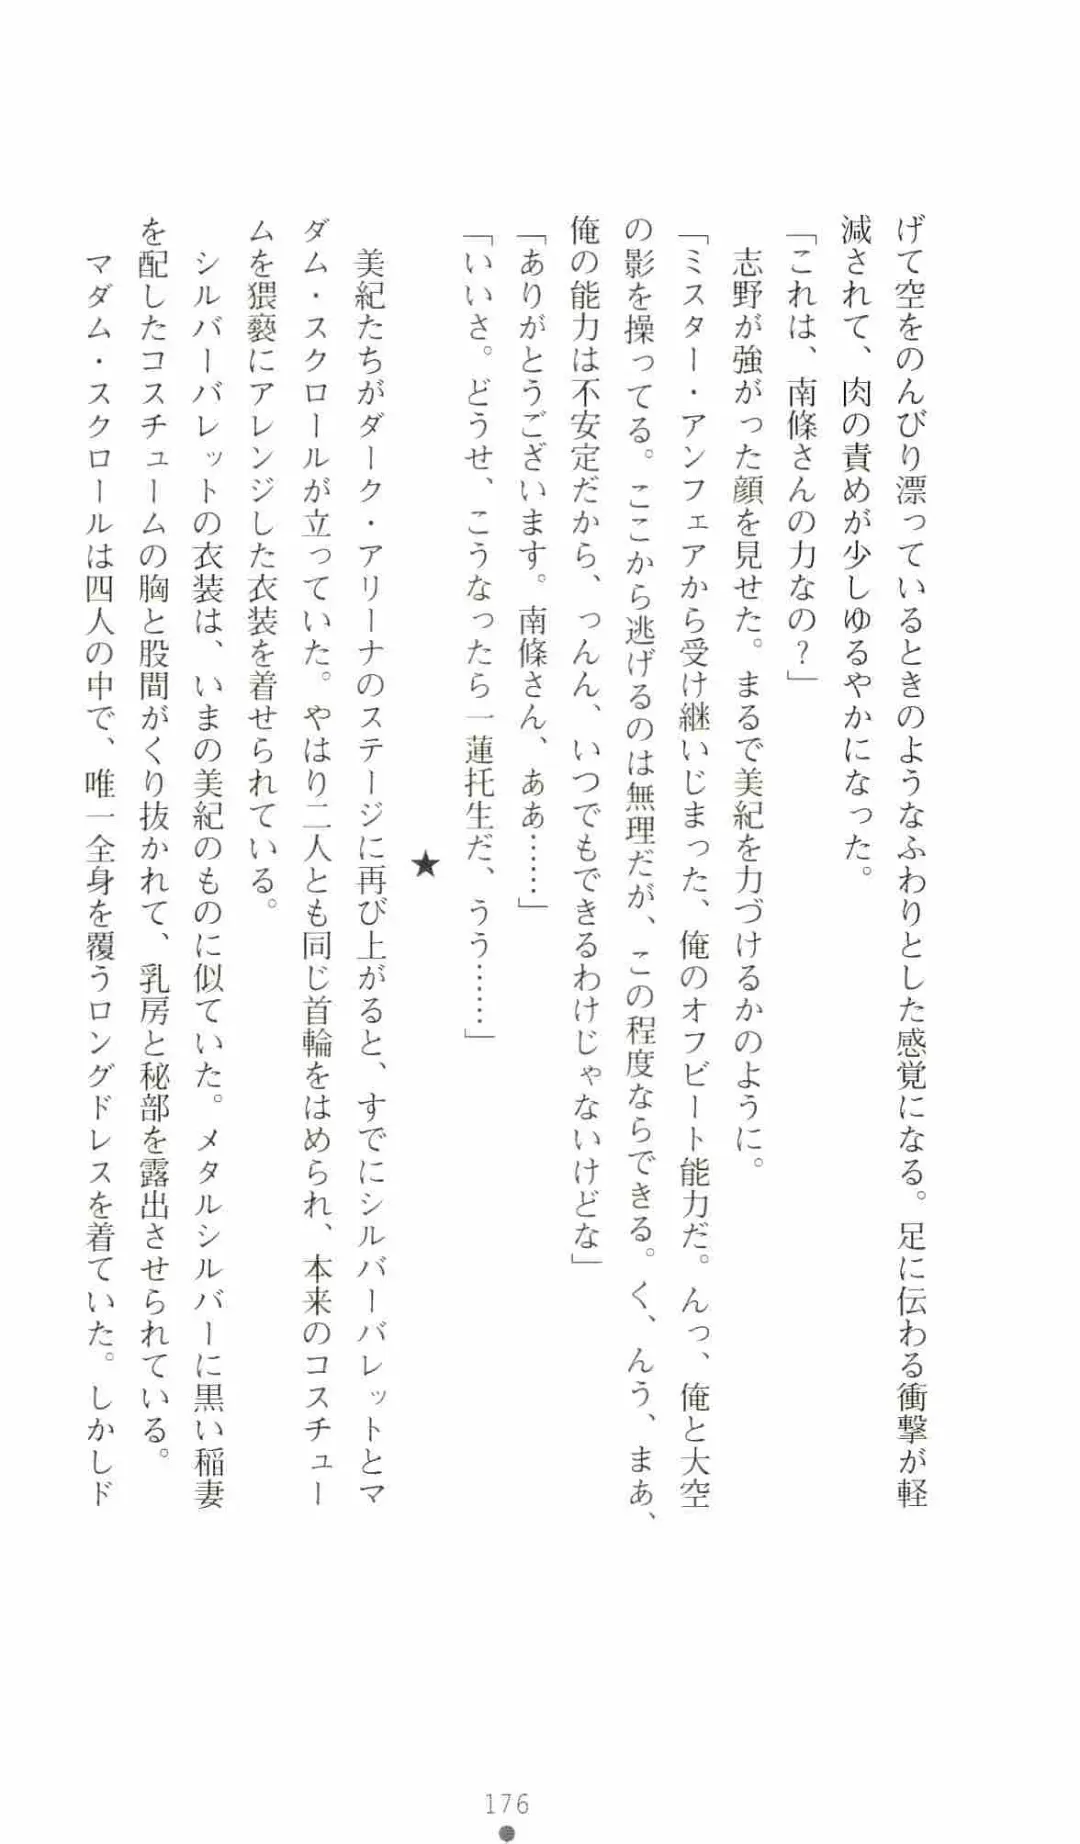 げて空をのんびり漂っているときのようなふわりとした感覚になる。足に伝わる衝撃が軽
減されて、肉の責めが少しゆるやかになった。
「これは、南條さんの力なの？」
志野が強がった顔を見せた。まるで美紀を力づけるかのように。
「ミスター・アンフェアから受け継いじまった、俺のオフビート能力だ。んっ、俺と大空
の影を操ってる。ここから逃げるのは無理だが、この程度ならできる。く、んう、まぁ、
俺の能力は不安定だから、っんん、いつでもできるわけじゃないけどな」
「ありがとうございます。南條さん、ああ……」
「いいさ。どうせ、こうなったら一蓮托生だ、うう……」
★
美紀たちがダーク・アリーナのステージに再び上がると、すでにシルバーバレットとマ
ダム・スクロールが立っていた。やはり二人とも同じ首輪をはめられ、本来のコスチュー
ムを猥褻にアレンジした衣装を着せられている。
シルバーバレットの衣装は、いまの美紀のものに似ていた。メタルシルバーに黒い稲妻
を配したコスチュームの胸と股間がくり抜かれて、乳房と秘部を露出させられている。
マダム・スクロールは四人の中で、唯一全身を覆うロングドレスを着ていた。しかしド
176